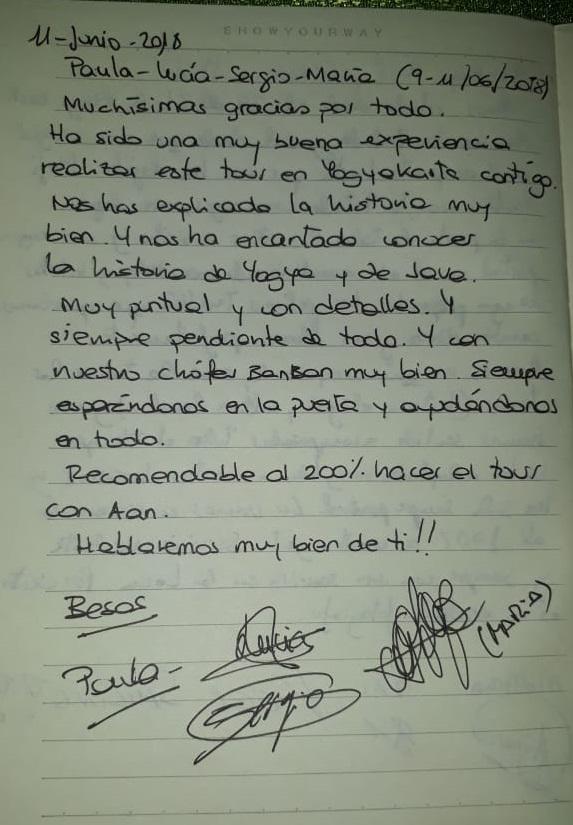 SHOWYOURWAY
11-Junio-2018
Paula-Lucía-Sergio-María (9-11/06/2018)
Muchísimas gracias por todo.
Ha sido una muy buena experiencia
realizar este tour en Yogyakarta contigo.
Nos has explicado la historia muy
bien. Y nos ha encantado conocer
la historia de Yogya y de Java.
Muy puntual y con detalles. Y
siempre pendiente de todo. Y con
nuestro chófer BanBan muy bien. Siempre
esperándonos en la puerta y ayudándonos
en todo.
Recomendable al 200% hacer el tour
con Aan.
Hablaremos muy bien de ti!!
Besos
Paula- Lucía (MARÍA)
Sergio